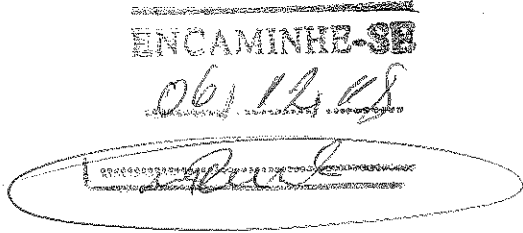 ENCAMINHE-SE
06/12/18